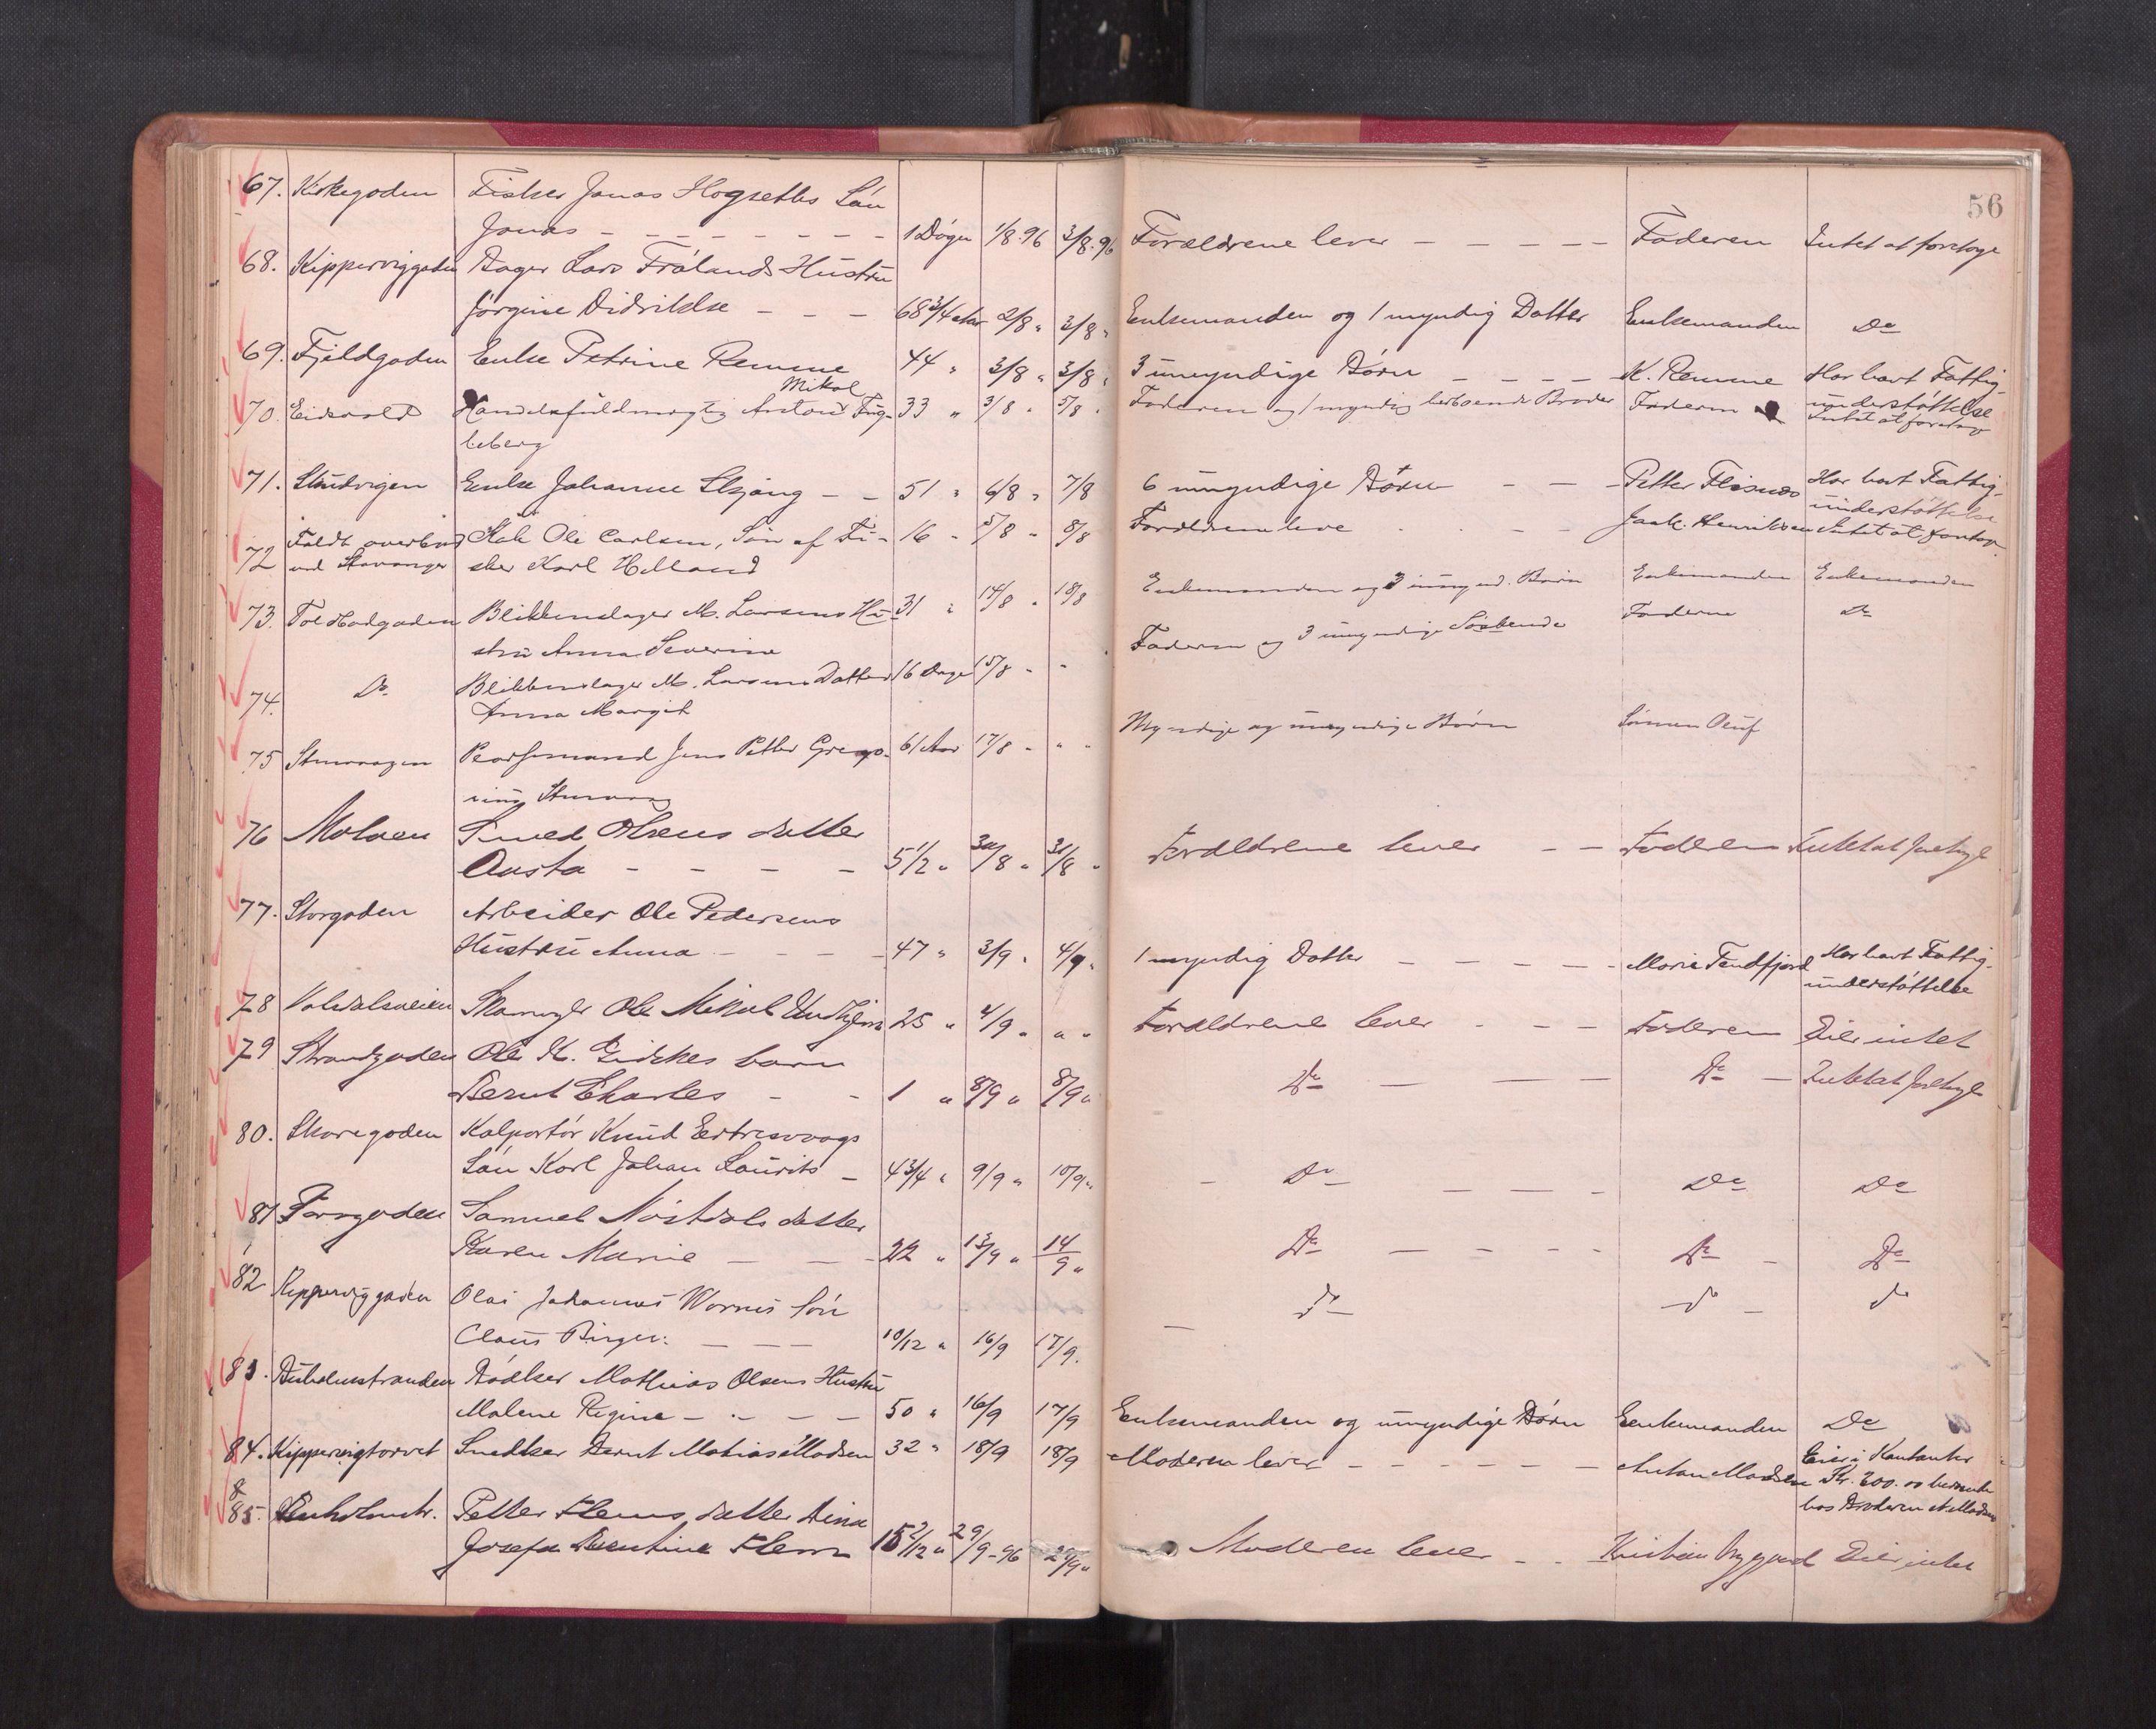 56
67. Kirkegaden Fisker Jonas Hogseths Søn
Jonas – – – – – – – – 1 Døgn 1/8.96 3/8.96 Forældrene lever – – – – – Faderen Intet at foretage
68. Kipperviggaden Bager Lars Frølands Hustru
Jørgine Didrikke – – – 68 3/4 Aar 2/8 " 3/8 " Enkemanden og 1 myndig Datter Enkemanden Do
69. Fjeldgaden Enke Petrine Remme 44 " 3/8 " 3/8 " 3 umyndige Børn – – – – K. Remme Har havt Fattig-
understøttelse
Mikal
70. Eidsvold Handelsfuldmægtig Anton Fug- 33 " 3/8 " 5/8 " Faderen og 1 myndig herboende Broder Faderen Intet at foretage
leberg
71. Skudvigen Enke Johanne Skjong – – 51 " 6/8 " 7/8 6 umyndige Børn – – – Petter Flisnæs Har havt Fattig-
understøttelse
72 Faldt overbord Kok Ole Carlsen, Søn af Fi- 16 " 5/8 " 8/8 Forældrene leve – – – Jaak. Henriksen Intet at foretage
ved Stavanger sker Karl Helland
73. Toldbodgaden Blikkenslager M. Larsens Hu- 31 " 14/8 " 18/8 Enkemanden og 3 umynd. Børn Enkemanden Enkemanden
stru Anna Severine
74. Do. Blikkenslager M. Larsens Datter 16 Dage 15/8 " " Faderen og 3 umyndige Søskende Faderen Do
Anna Margit
75 Stenvaagen Jens Petter Grego- 61 Aar 17/8 " " " Myndige og umyndige Børn Sønnen Oluf
rius Stenvaag
76 Molvæn Smed Olsens datter
Aasta – – – – 5 1/2 " 30/8 " 31/8 " Forældrene lever – – Faderen Intet at foretage
77. Storgaden Arbeider Ole Pedersens
Hustru Anna – – – – 47 " 3/9 " 4/9 " 1 myndig Datter – – – – – Marie Tendfjord Har havt Fattig-
understøttelse
78 Volsdalsveien Skomager Ole Mikal 25 " 4/9 " " " Forældrene lever – – – Faderen Eier intet
79 Strandgaden Ole K. Giskes barn
Bernt Charles – – 1 " 8/9 " 8/9 " Do – – – Do – Intet at foretage
80. Skaregaden Kolportør Knud Eertresvaags
Søn Karl Johan Laurits – 4 3/4 " 9/9 " 10/9 " – Do – – – – Do Do
81 Parrgaden Samuel Nøstdals datter
Karen Marie – – – 22 " 13/9 " 14/9 " Do – – – – Do – Do
82 Kipperviggaden Olai Johannes Wornis Søn
Claus Birger. – – – 10/12 " 16/9 17/9. – do do – do
83. Buholmstranden Bødker Mathias Olsens Hustru
Malene Regine – – – – 50 " 16/9 17/9 Enkemanden og umyndige Børn Eenkemanden Do
84. Kipperviktorvet Snedker Bernt Mathias Madsen 32 " 18/9 18/9 Moderen lever – – – – – – Anton Madsen Eier i Kontanter
Kr. 200.00
hos Broderen A. Madsen
85. Buholmstr. Petter Flems datter Dina
Josefa Bentine Flem 15 2/12 " 29/9–96 29/9 " Moderen lever – – Kristian Eier intet